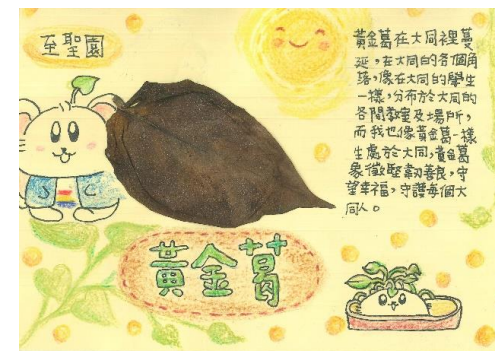 至聖園
黃金葛在大同裡蔓
延，在大同的各個角
落，像在大同的學生
一樣，分布於大同的
各間教室及場所，
而我也像黃金葛一樣
生處於大同，黃金葛
象徵堅韌善良，守
望幸福，守護每個大
同人。
黃金葛